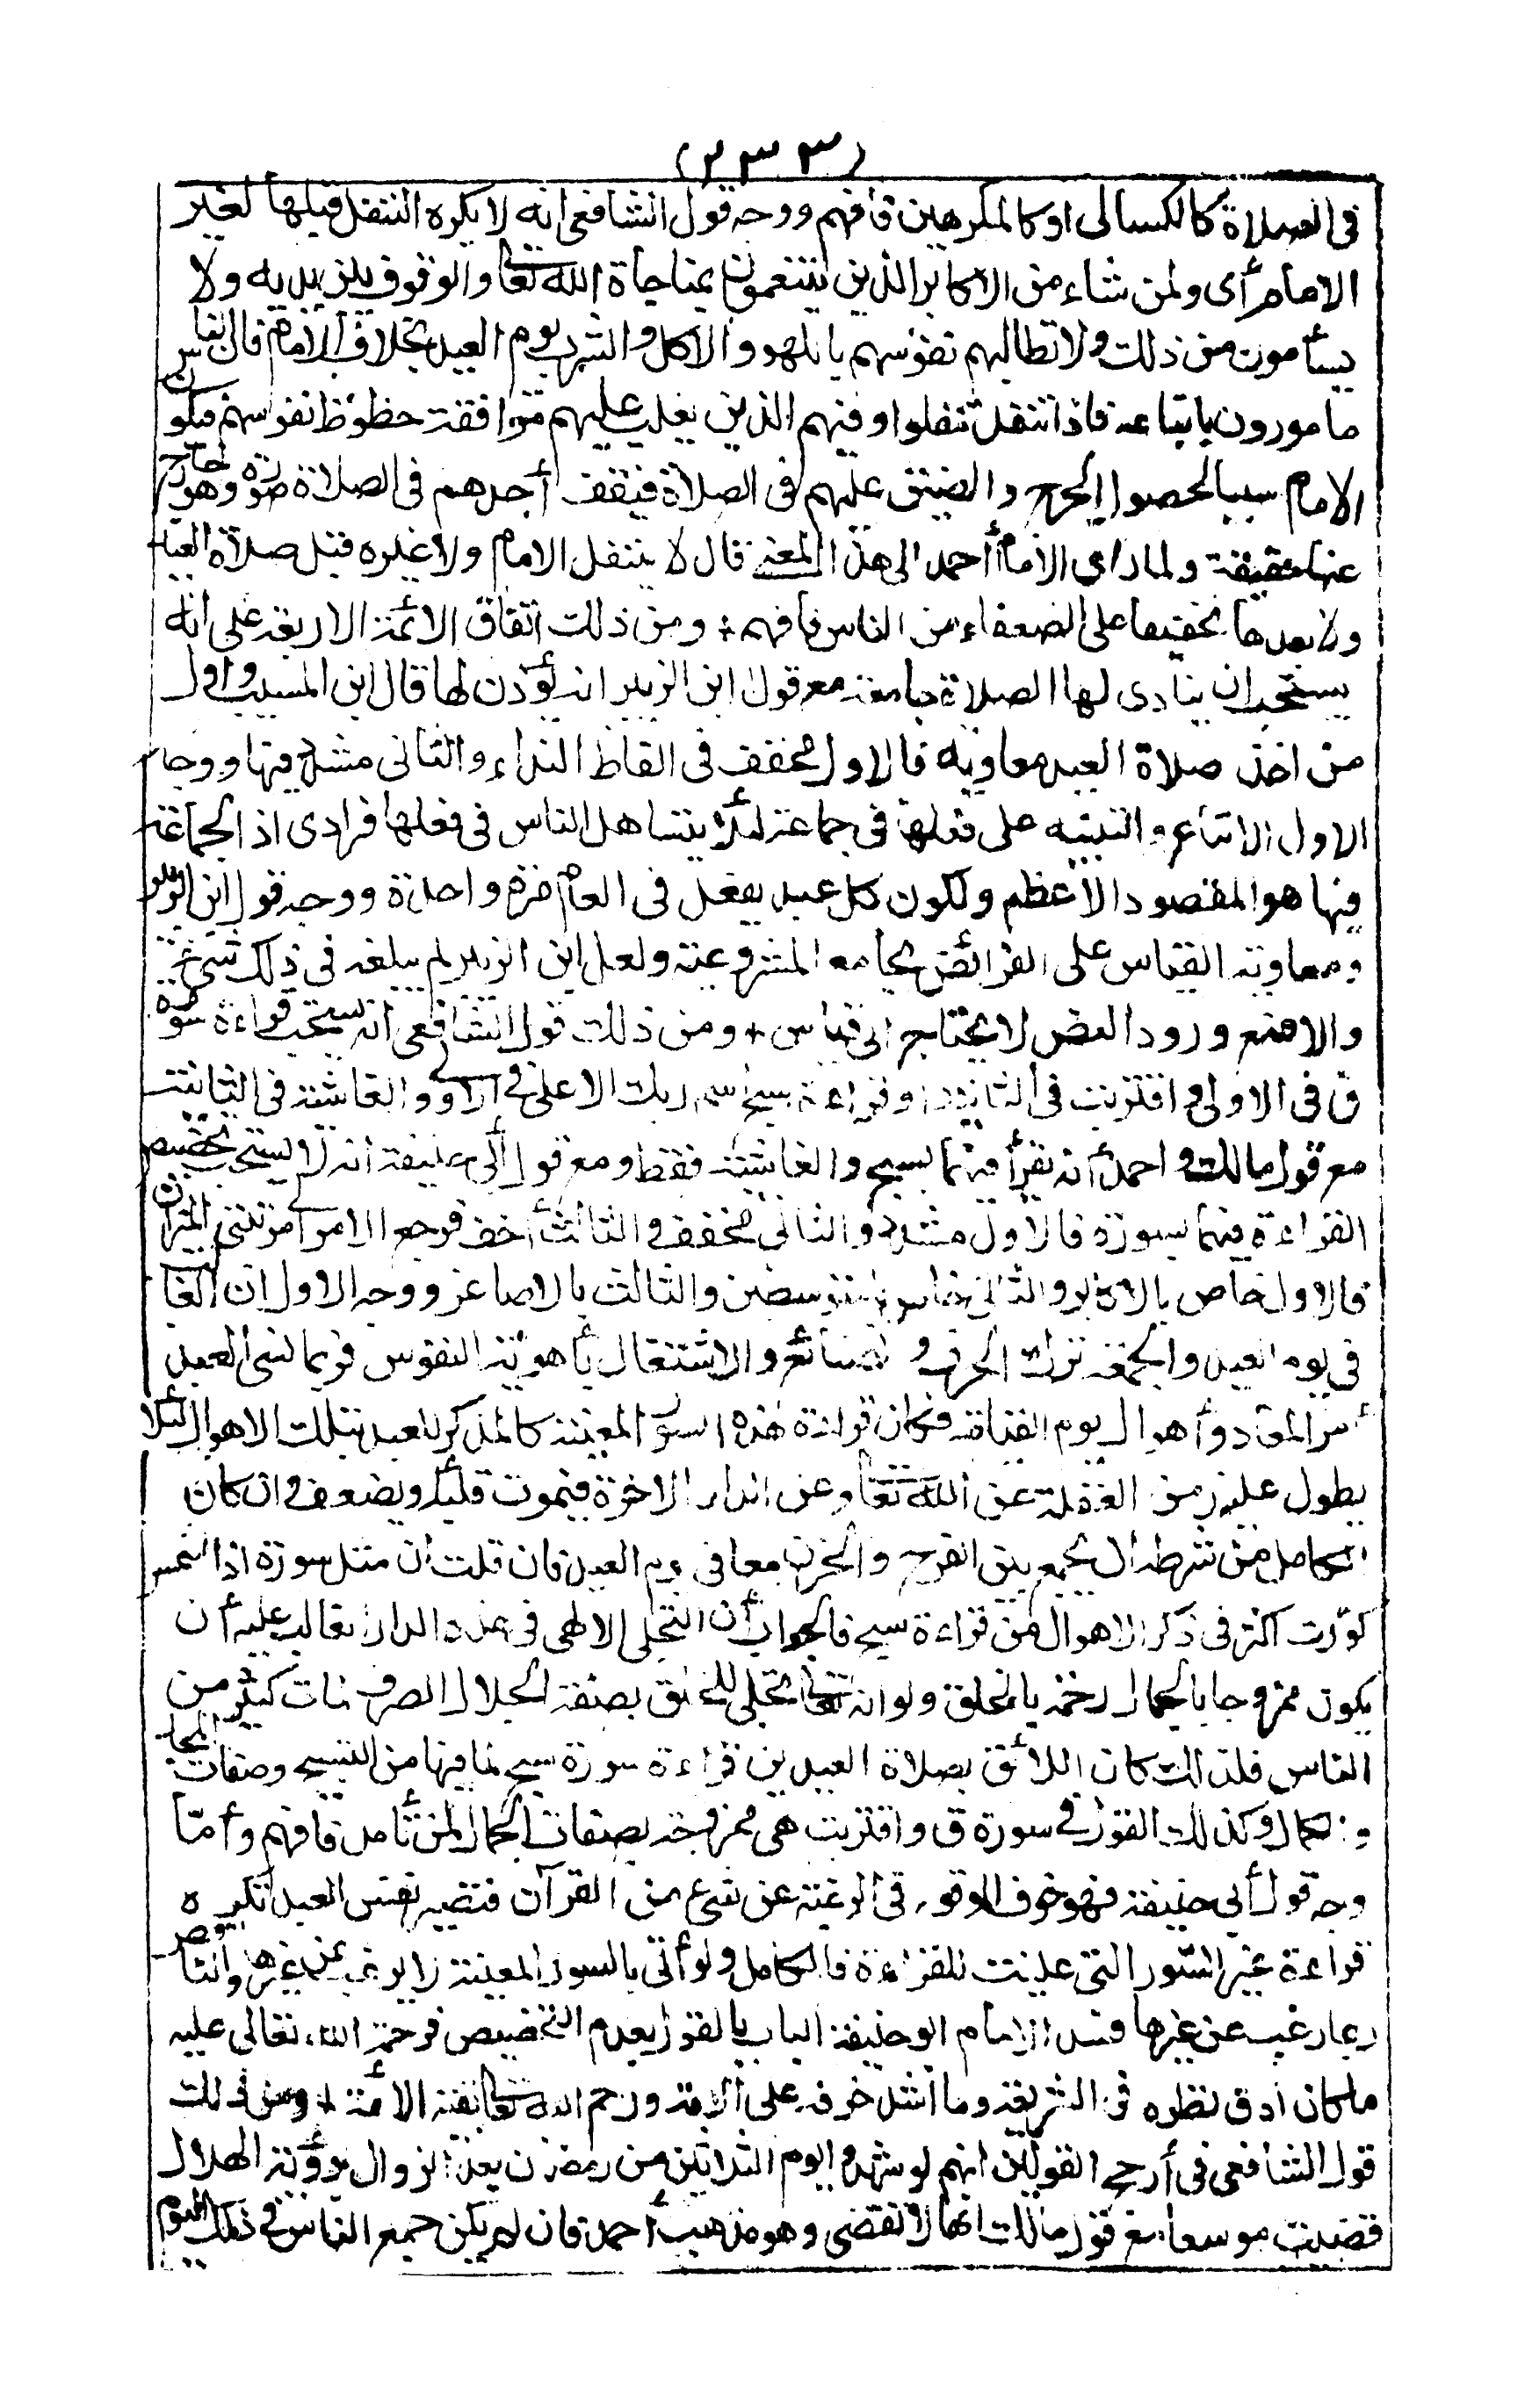 (٢٣٣)
فى الصلاة كالكسالى او كالمكرهين فافهم ووجه قول الشافعى انه لا يكره التنفل قبلها لغير
الامام أى ولمن شاء من الاكابر الذين يتنعمون بمناجاة الله تعا والوقوف بين يديه ولا
يسأمون من ذلك ولا تطالبهم نفوسهم باللهو والاكل والشرب يوم العيد بخلاف الامام فان الناس
مامورون باتباعه فاذا تنفل تنفلوا وفيهم الذين يغلب عليهم موافقة حظوظ نفوسهم فيكون
الامام سببا لحصول الحرج والضيق عليهم فى الصلاة فيقف أحدهم فى الصلاة صورة وهو خارج
عنها حقيقة ولما راى الامام أحمد الى هذا المعنى قال لا يتنفل الامام ولا غيره قبل صلاة العيد
ولا بعدها تخفيفا على الضعفاء من الناس فافهم + ومن ذلك اتفاق الائمة الاربعة على انه
يستحب ان ينادى لها الصلاة جامعة مع قول ابن الزبير انه يؤذن لها قال ابن المسيب واول
من اخذ صلاة العيد معاوية فالاول مخفف فى الفاظ النداء والثانى مشدد فيها ووجه
الاول الاتباع والتنبيه على فعلها فى جماعة لئلا يتساهل الناس فى فعلها فرادى اذ الجماعة
فيها هو المقصود الأعظم ولكون كل عيد يفعل فى العام مرة واحدة ووجه قول ابن الزبير
ومعاوية القياس على الفرائض بجامع المشروعية ولعل ابن الزبير لم يبلغه فى ذلك شئ
والا فمع ورود النص لا يحتاج الى قياس + ومن ذلك قول الشافعى انه يستحب قراءة سورة
ق فى الاولى واقتربت فى الثانية او قراءة سبح اسم ربك الاعلى فى الاولى والغاشية فى الثانية
مع قول مالك واحمد أنه يقرأ فيهما بسبح والغاشية فقط ومع قول أبى حنيفة انه لا يستحب تخصيص
القراءة فيهما بسورة فالاول مشدد والثانى مخفف والثالث أخف فرجع الامر الى مرتبتى الميزان
فالاول خاص بالاكابر والثانى خاص بالمتوسطين والثالث بالاصاغر ووجه الاول ان الغالب
فى يوم العيد والجمعة ترك الحرف والصنائع والاشتغال بأهوية النفوس فربما نسى العبد
أمر المعاد وأهوال يوم القيامة فكان قراءة هذه السور المعينة كالمذكر للعبد بتلك الاهوال لئلا
يطول عليه زمن الغفلة عن الله تعا وعن الدار الاخرة فيموت قلبه او يضعف وان كان
الكامل من شرطه ان يجمع بين الفرح والحزن معا فى يوم العيد فان قلت ان مثل سورة اذا الشمس
كوّرت اكثر فى ذكر الاهوال من قراءة سبح فالجواب أن التجلى الالهى فى هذه الدار الغالب عليه أن
يكون ممزوجا بالجمال رحمة بالخلق ولو انه تعا تجلى للخلق بصفة الجلال الصرف لمات كثير من
الناس فلذلك كان اللائق بصلاة العيدين قراءة سورة سبح لما فيها من التسبيح وصفات المجد
والكمال وكذلك القول فى سورة ق واقتربت هى ممزوجة بصفات الجمال لمن تأمل فافهم وأمّا
وجه قول أبى حنيفة فهو خوف الوقوع فى الرغبة عن شئ من القرآن فتصير نفس العبد تكره
قراءة غير السّور التى عينت للقراءة فالكامل ولو أتى بالسور المعينة لا يرغب عن غيرها والناقص
ربما رغب عن غيرها فسد الامام ابو حنيفة الباب بالقول بعدم التخصيص فرحمة الله تعالى عليه
ما كان أدق نظره فى الشريعة وما أشد خوفه على الامة ورحم الله تعا بقية الأئمة + ومن ذلك
قول الشافعى فى أرجح القولين انهم لو شهدوا يوم الثلاثين من رمضان بعد الزوال برؤية الهلال
قضيت موسعا مع قول مالك انها لا تقضى وهو مذهب أحمد فان لم يكن جمع الناس فى ذلك اليوم